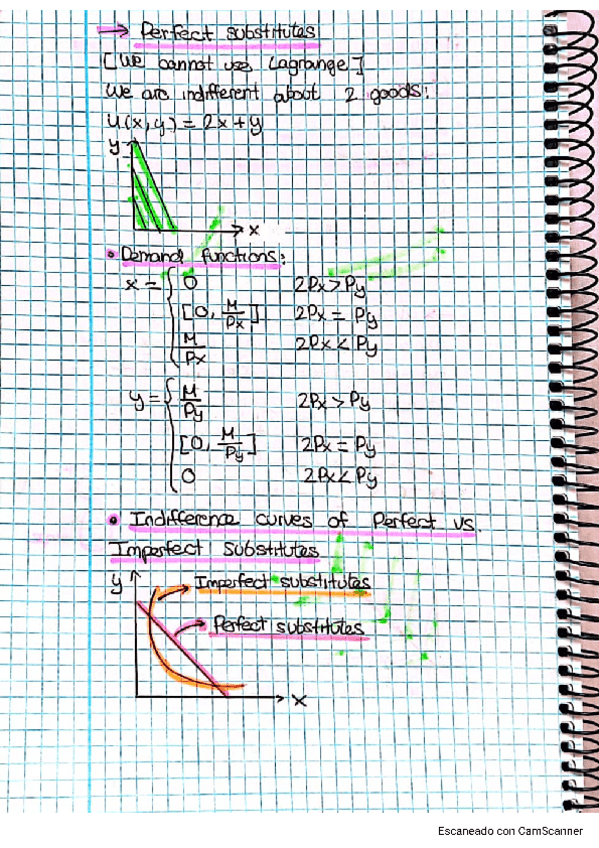 → Perfect substitutes
[We cannot use Lagrange]
We are indifferent about 2 goods:
U(x,y) = 2x + y
y
x
• Demand functions:
x = { 0 2Px > Py
[0, M/Px] 2Px = Py
M/Px 2Px < Py
y = { M/Py 2Px > Py
[0, M/Py] 2Px = Py
0 2Px < Py
• Indifference curves of Perfect vs.
Imperfect Substitutes
y → Imperfect substitutes
→ Perfect substitutes
x
Escaneado con CamScanner